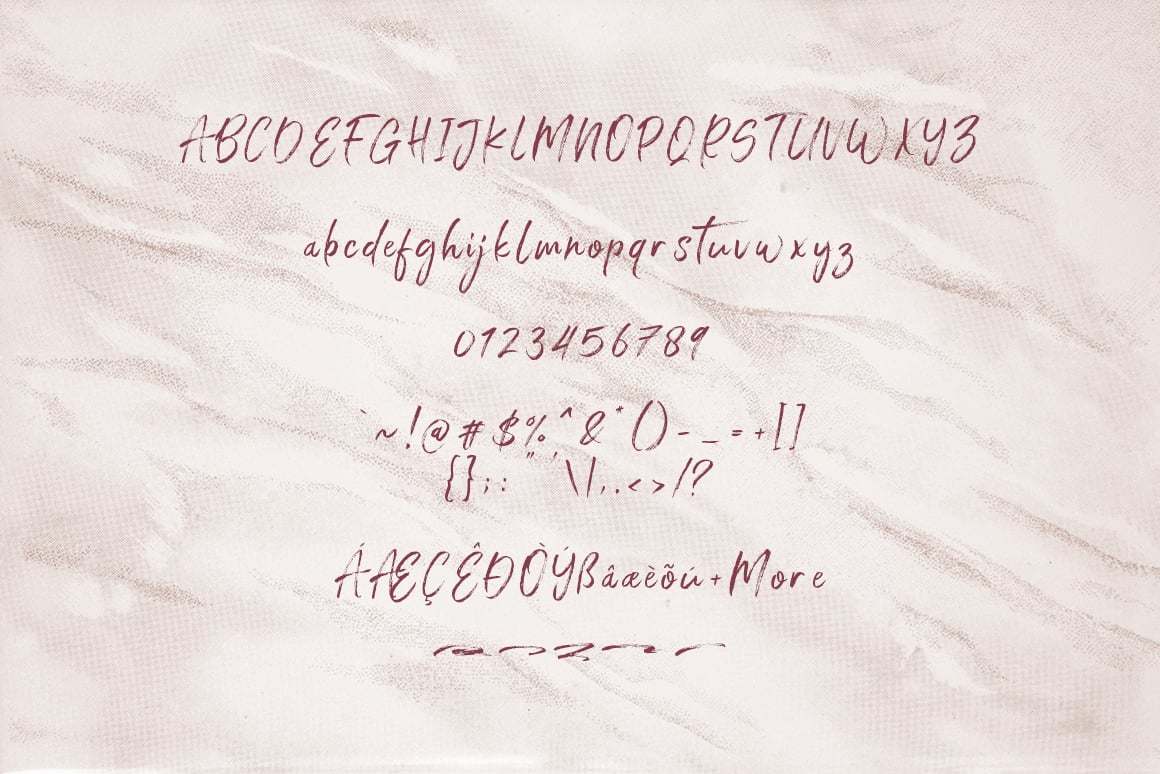 ABCDEFGHIJKLMNOPQRSTUVWXYZ
abcdefghijklmnopqrstuvwxyz
0123456789
`~!@#$%^&*()-_=+[]
{};:"'\|,.<>/?
ÁÆÇÊÐÒÝßâæèõú+More